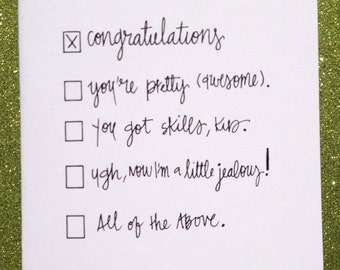 congratulations
you're pretty (awesome).
you got skills, kid.
ugh, now I'm a little jealous!
All of the Above.